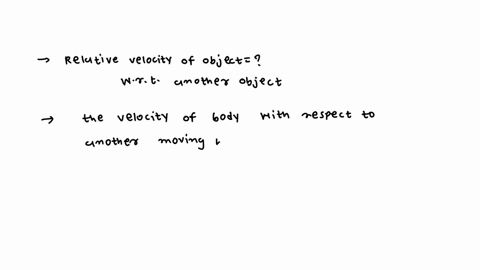 → Relative velocity of object = ?
w.r.t. another object
→ the velocity of body with respect to
another moving